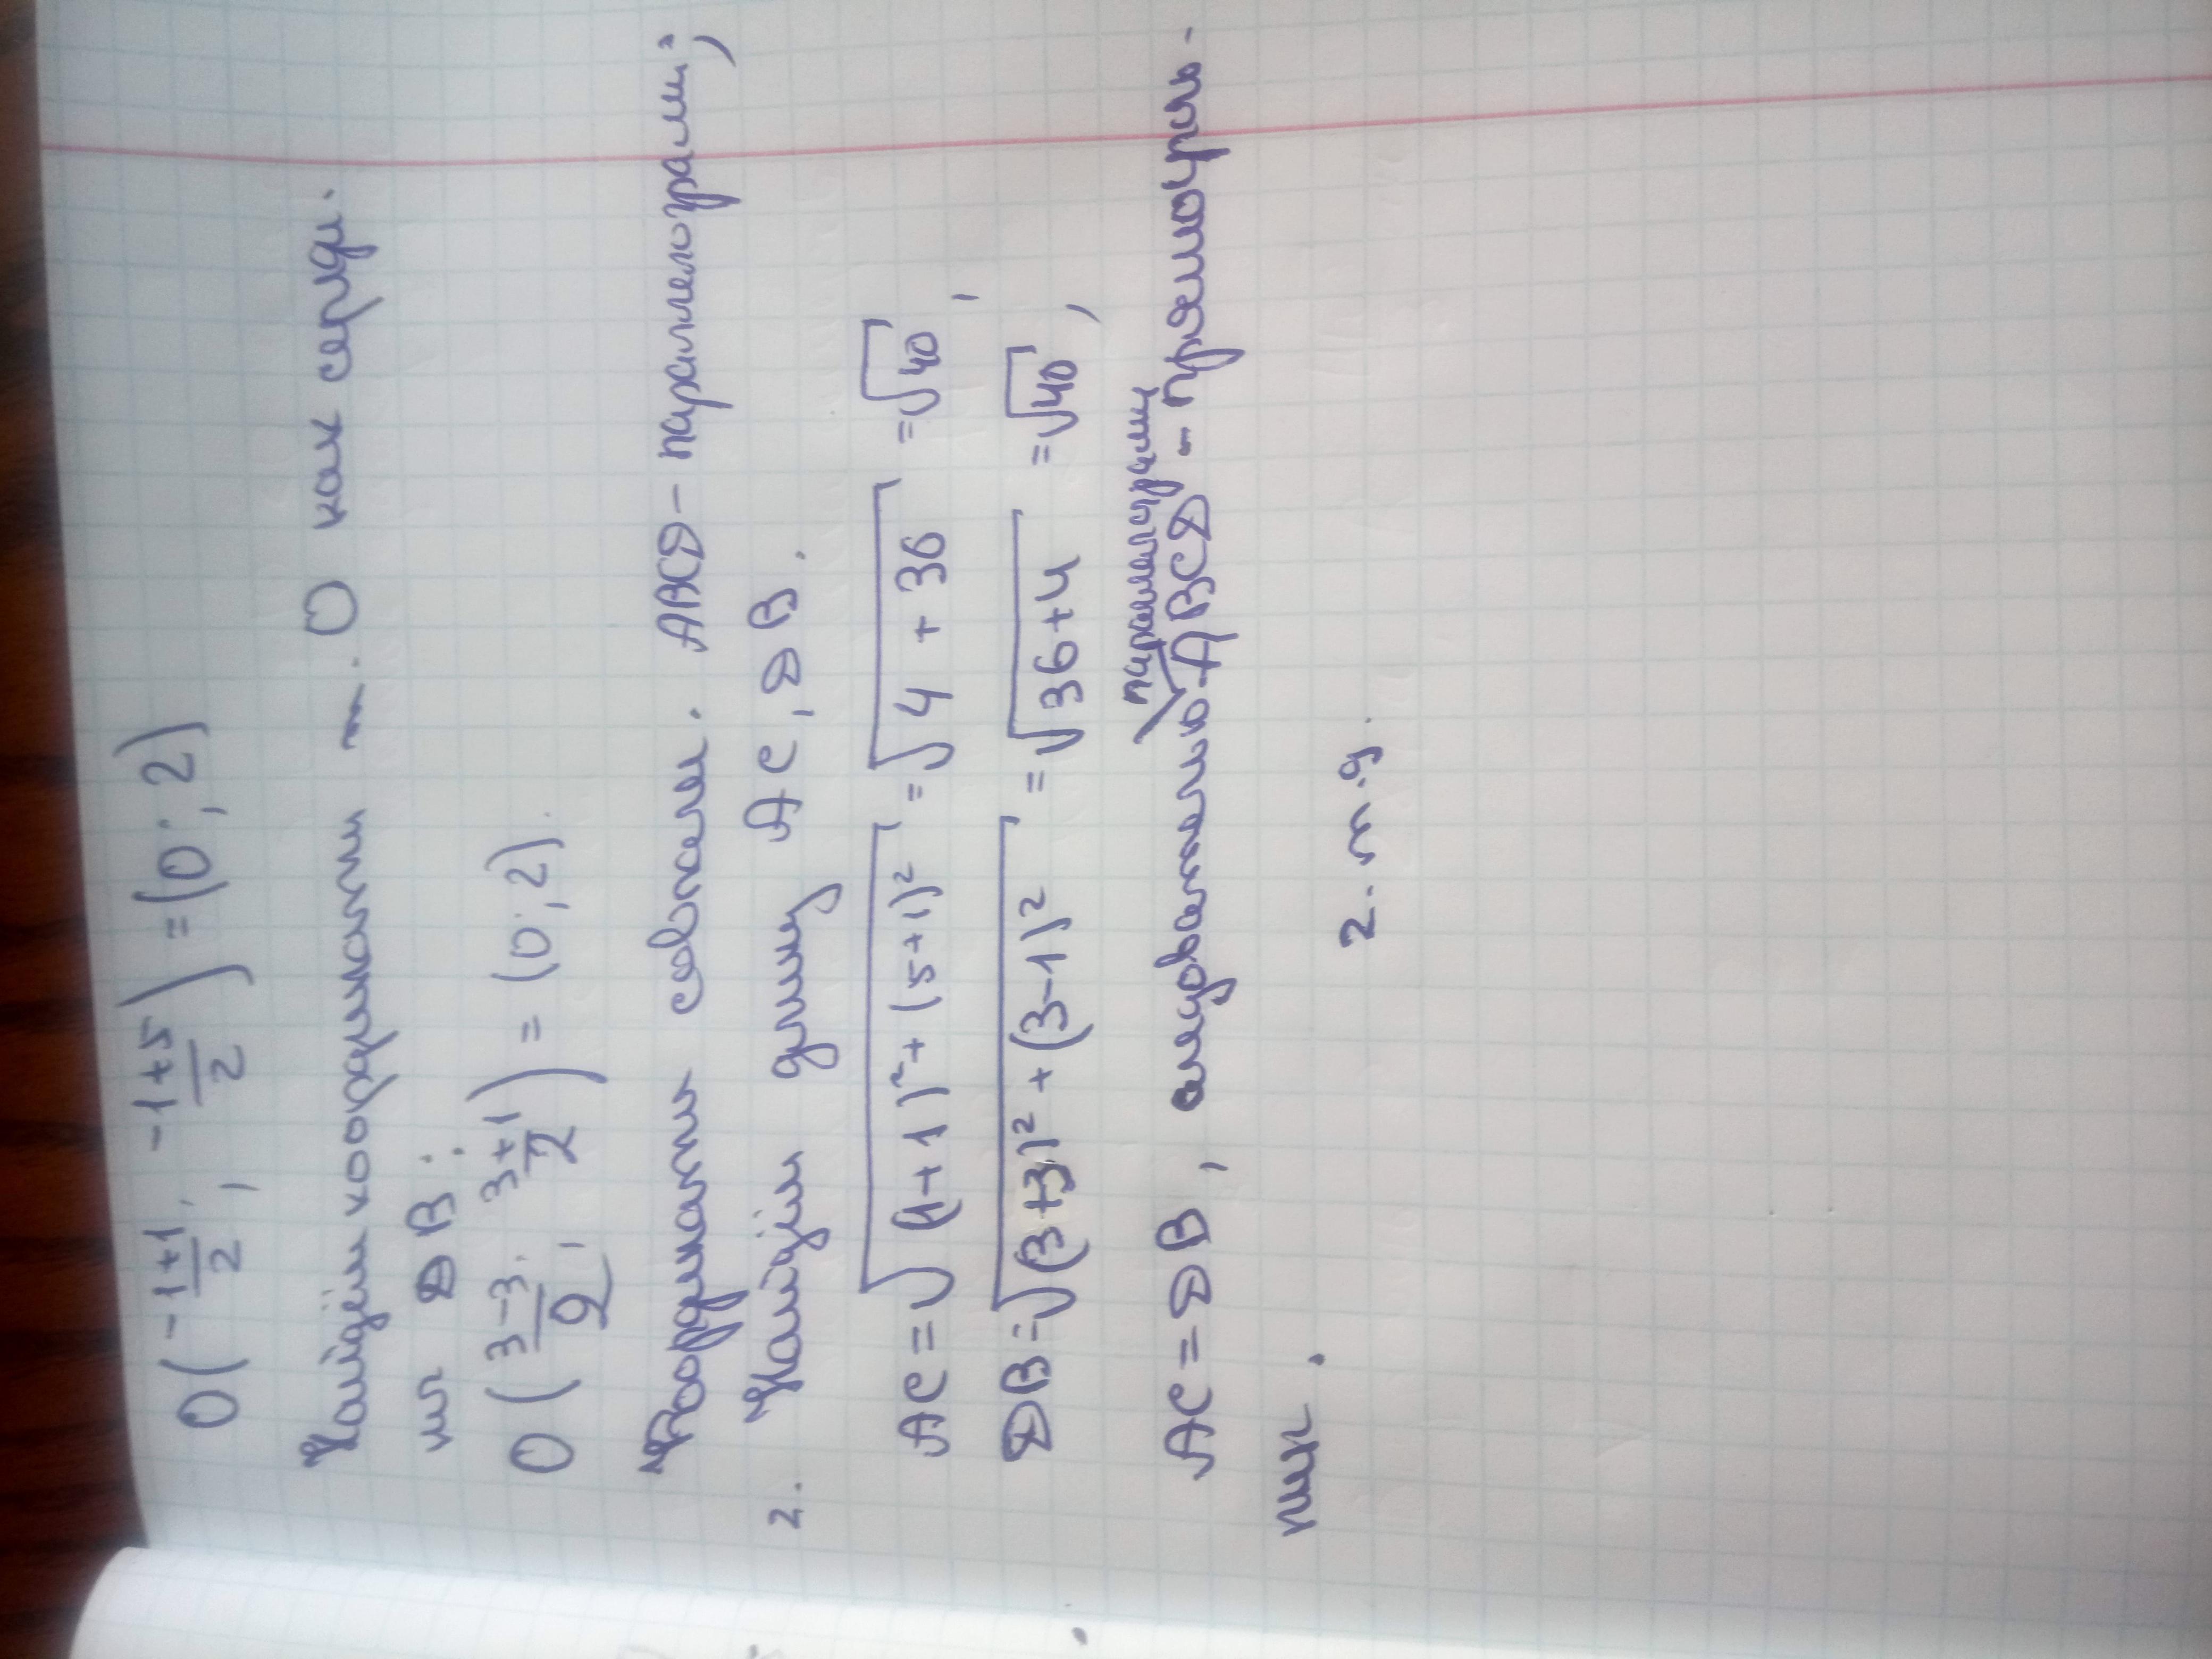 O(\frac{-1+1}{2}; \frac{-1+5}{2})=(0; 2)
Найдём координаты т. O как середи-
ны DB:
O(\frac{3-3}{2}; \frac{3+1}{2}) = (0; 2).
Координаты совпали. ABCD - параллелограмм;
2. Найдём длину AC, DB.
AC = \sqrt{(1+1)^2+(5+1)^2} = \sqrt{4+36} = \sqrt{40},
DB = \sqrt{(3+3)^2+(3-1)^2} = \sqrt{36+4} = \sqrt{40},
параллелограмм
AC = DB, следовательно ABCD - прямоуголь-
ник.
ч.т.д.